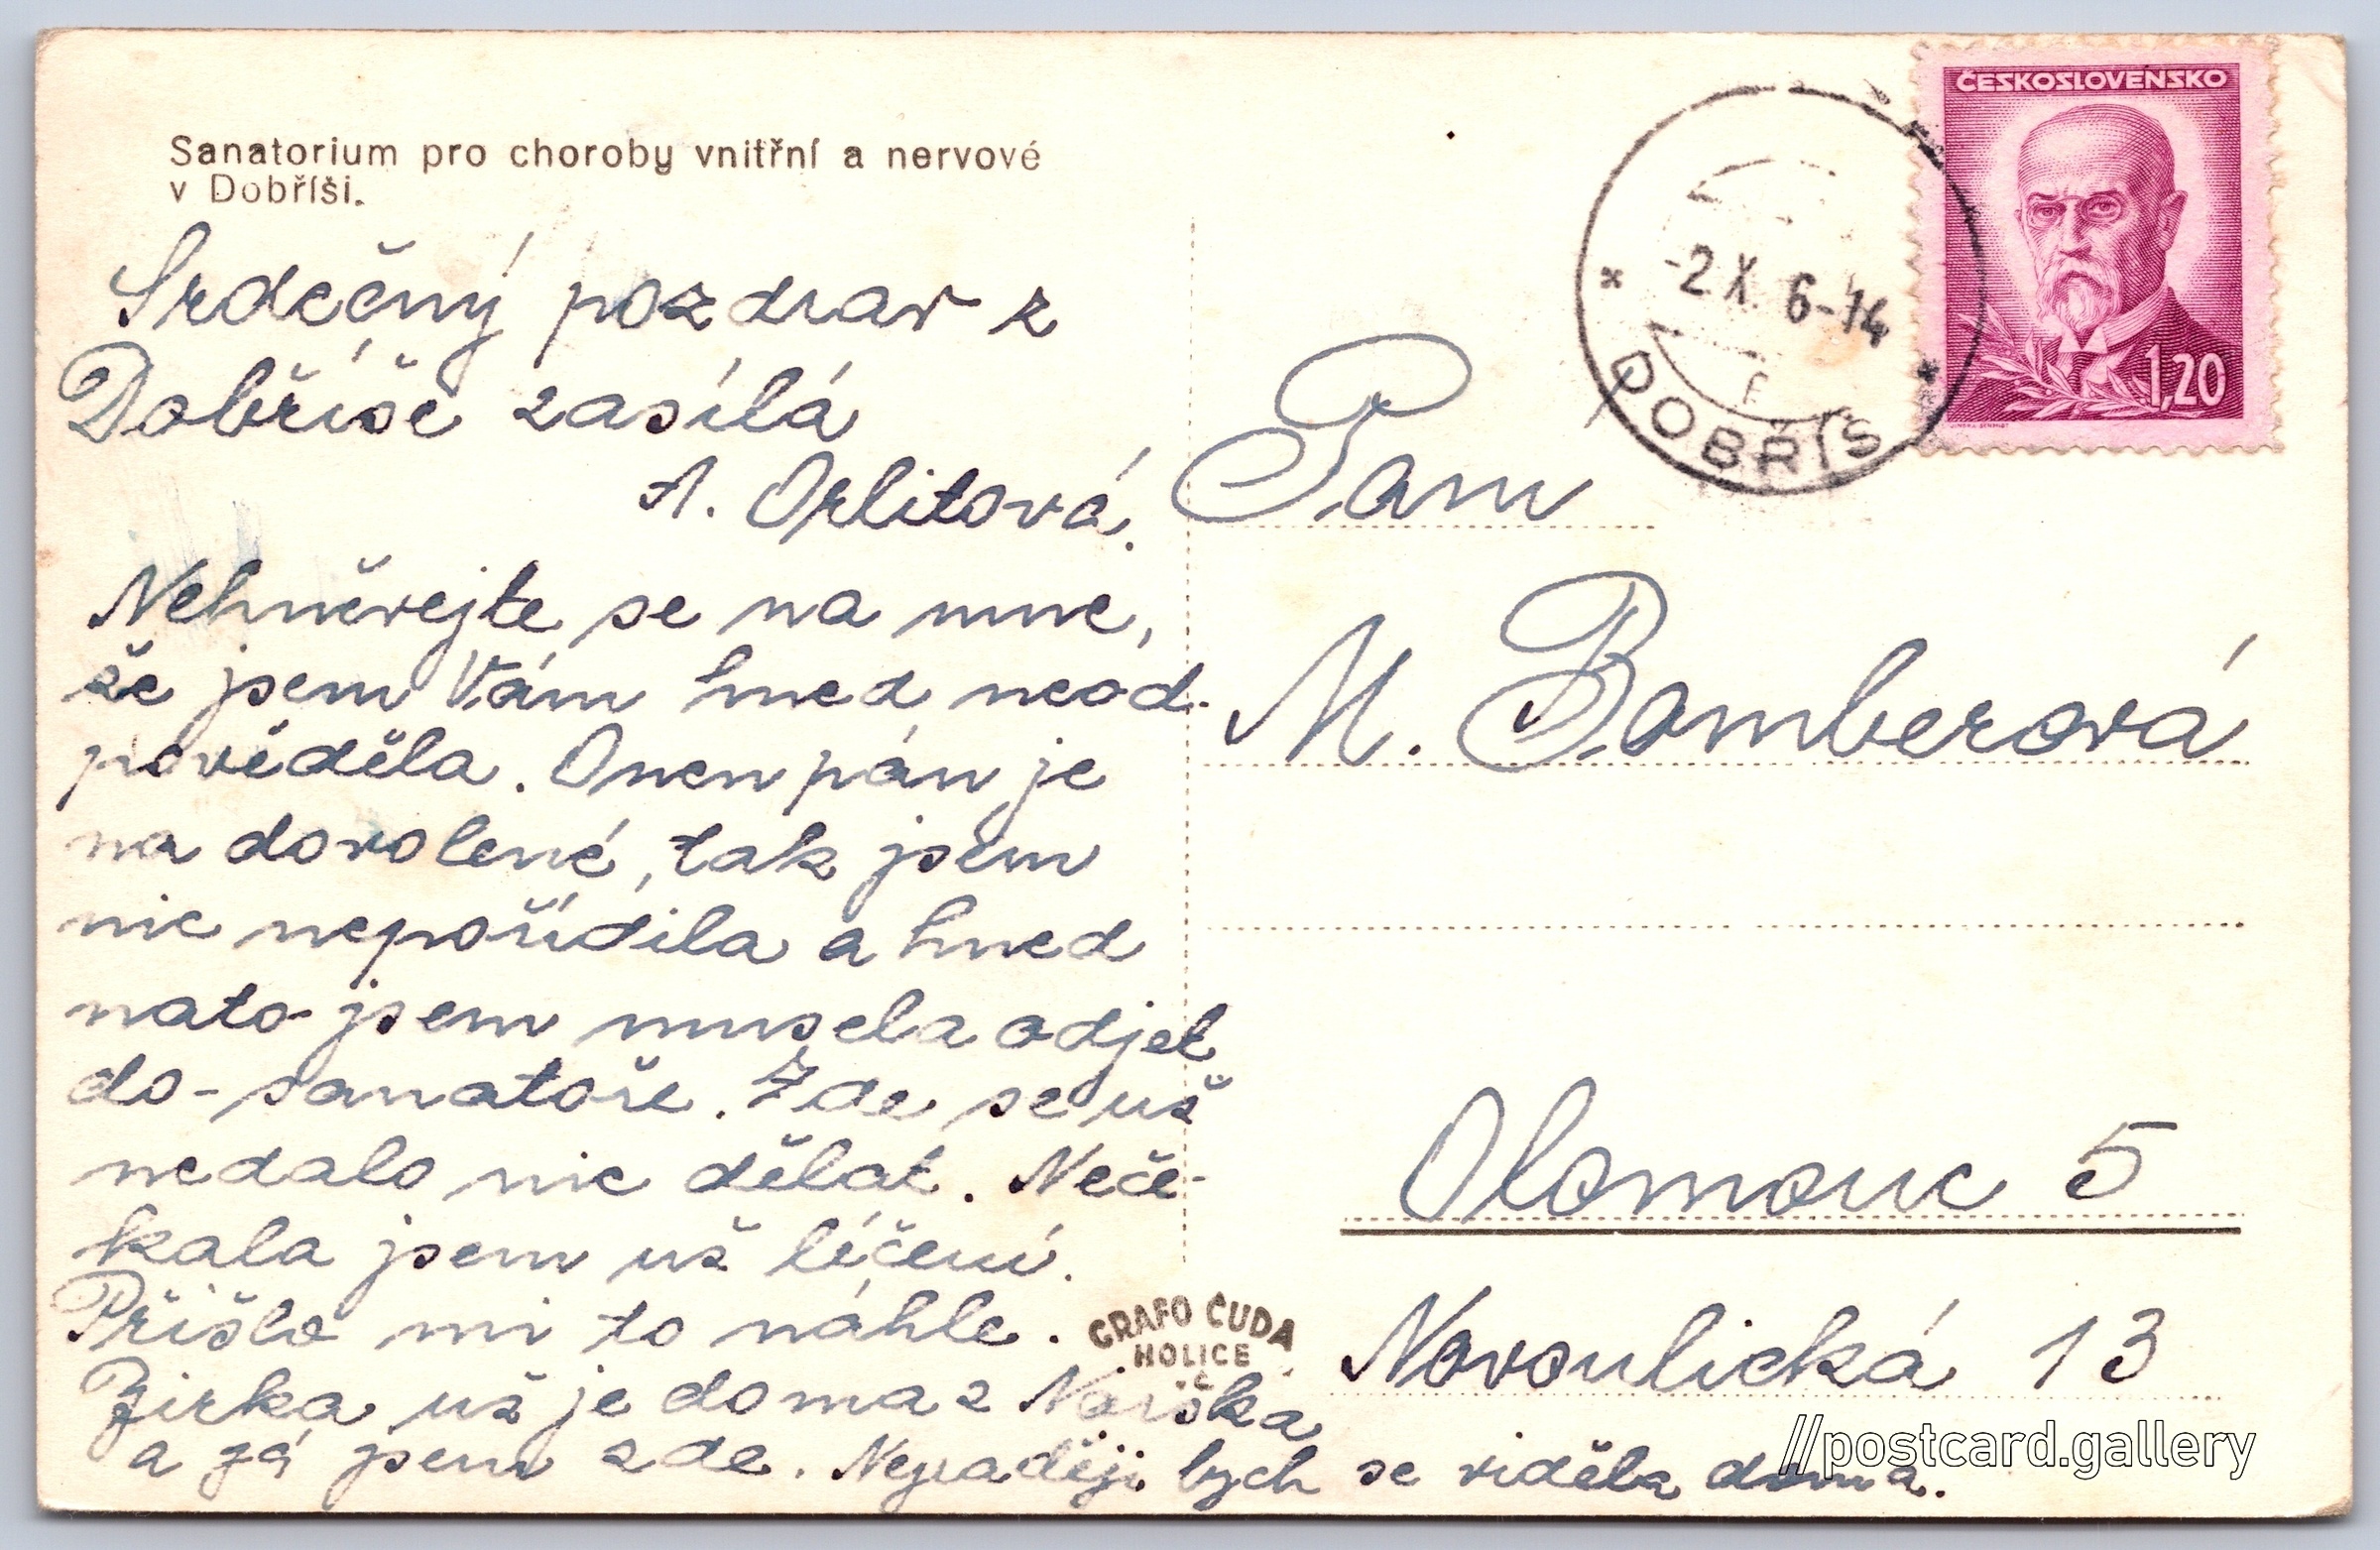 Sanatorium pro choroby vnitřní a nervové
v Dobříši.
Srdečný pozdrav z
Dobříše zasílá
A. Orlitová.
Nehněvejte se na mne,
že jsem Vám hned neod-
pověděla. Onen pán je
na dovolené, tak jsem
nic nepořídila a hned
nato jsem musela odjet
do-sanatoře. Zde se už
nedalo nic dělat. Neče-
kala jsem už léčení.
Přišlo mi to náhle.
Jirka už je doma z
a já jsem zde. Nejraději bych se viděla doma.
ČESKOSLOVENSKO
1,20
-2 X. 6-14
DOBŘÍŠ
Paní
M. Bamberová
Olomouc 5
Novoulická 13
GRAFO ČUDA
HOLICE
//postcard.gallery